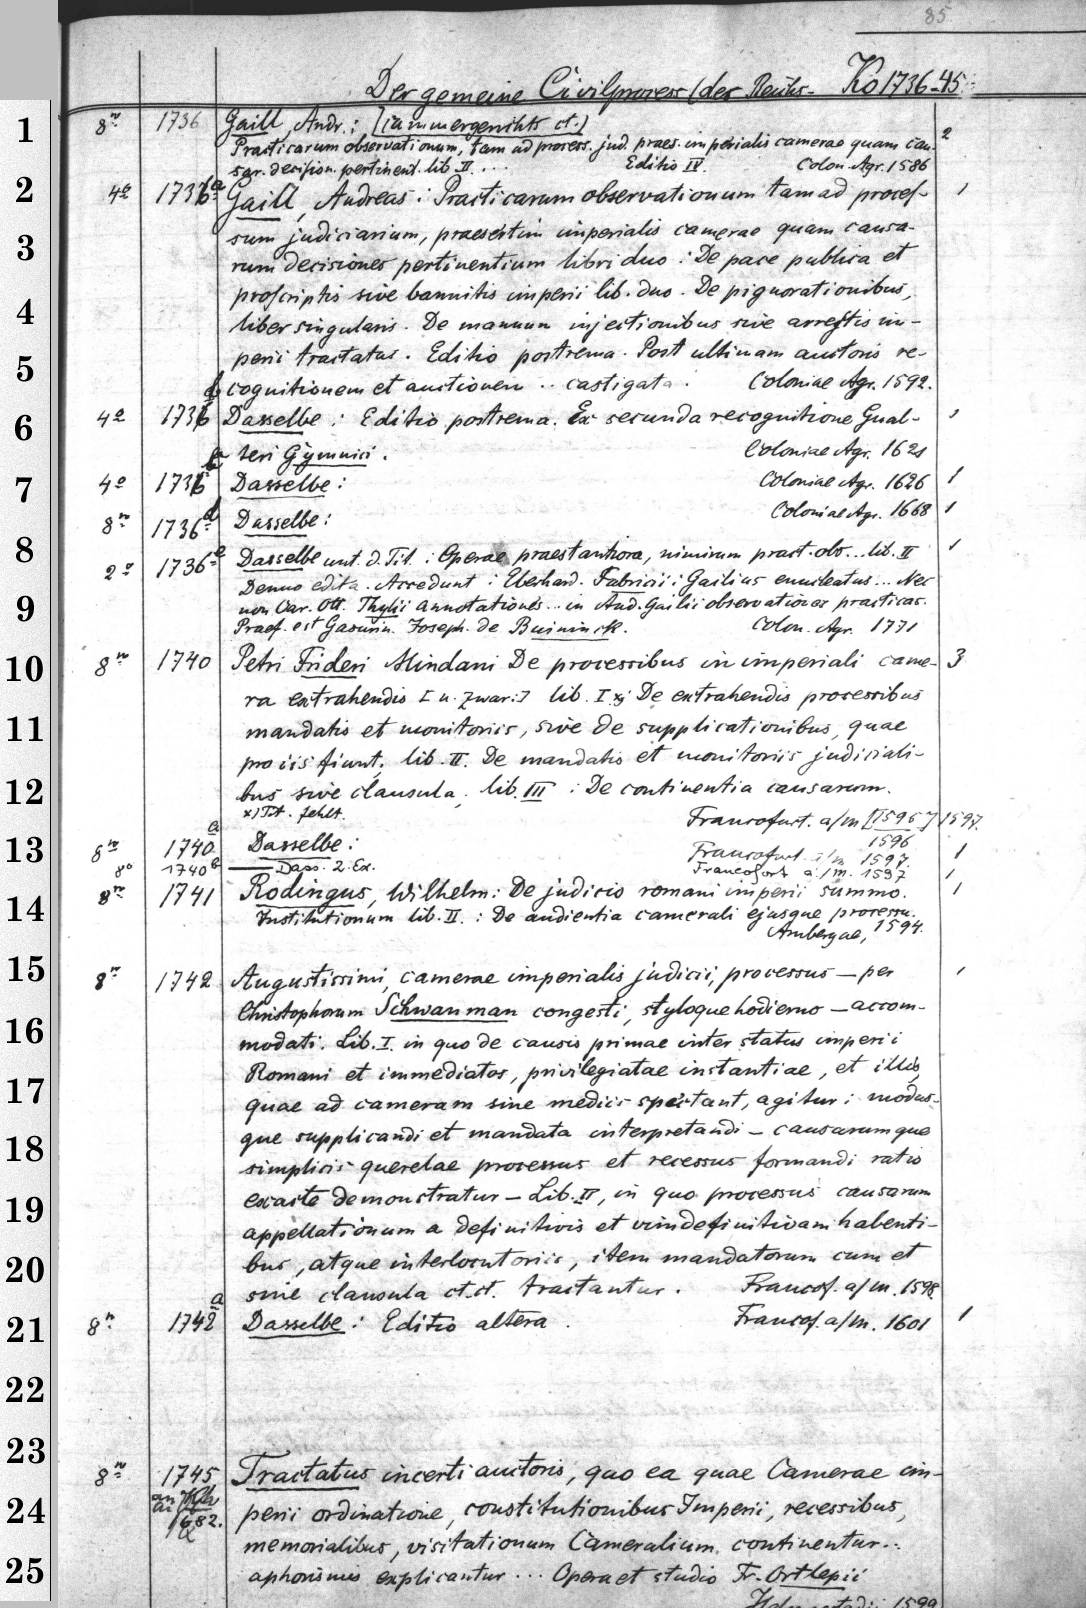 85
Der gemeine Civilprocess (der Reichs- Ko 1736-45
1 8º 1736 Gaill, Andr.: [cammergerichts ct.)
Practicarum observationum, tam ad process. jud. praes. imperialis camerae quam cau- 2
sar. decision. pertinent. lib. II. ... Editio IV. Colon. Agr. 1586
2 4º 1736a Gaill, Andreas: Practicarum observationum tam ad proces- 1
3 sum judiciarium, praesertim imperialis camerae quam causa-
rum decisiones pertinentium libri duo: De pace publica et
4 proscriptis sive bannitis imperii lib. duo. De pignorationibus,
liber singularis. De manuum injectionibus sive arrestis im-
5 perii tractatus. Editio postrema. Post ultimam auctoris re-
cognitionem et auctionem .. castigata. Coloniae Agr. 1592.
6 4º 1736b Dasselbe: Editio postrema. Ex secunda recognitione Gual- 1
teri Gymnici. Coloniae Agr. 1621
7 4º 1736c Dasselbe: Coloniae Agr. 1626 1
8º 1736d Dasselbe: Coloniae Agr. 1668 1
8 2º 1736e Dasselbe unt. d. Tit.: Operae praestantiora, nimirum pract. obs... lib. II 1
Denuo edita. Accedunt: Eberhard. Fabricii: Gailius enucleatus... Nec
9 non Car. Ott. Thylii annotationes... in And. Gailii observationes practicas.
Praef. est Joseph. de Buininck. Colon. Agr. 1771
10 8º 1740 Petri Frideri Mindani De processibus in imperiali came- 3
ra extrahendis [u. zwar:] lib. I x) De extrahendis processibus
11 mandatis et monitoriis, sive de supplicationibus, quae
pro iis fiunt; lib. II. De mandatis et monitoriis judiciali-
12 bus sive clausula; lib. III: De continentia causarum.
x) Tit. fehlt. Francofurt. a/m [1596] 1597.
1596
13 8º 1740a Dasselbe: Francofurt. a/m 1597 1
8º 1740b Dass. 2. Ex. Francofort a/m. 1597 1
14 8º 1741 Rodingus, Wilhelm: De judicio romani imperii summo. 1
Institutionum lib. II.: De audientia camerali ejusque processu.
Ambergae, 1594.
15 8º 1742 Augustissimi, camerae imperialis judicii, processus — per 1
Christophorum Schwanman congesti, styloque hodierno — accom-
16 modati. Lib. I. in quo de causis primae inter status imperii
Romani et immediatos, privilegiatae instantiae, et illis,
17 quae ad cameram sine mediis spectant, agitur: modus-
que supplicandi et mandata interpretandi — causarumque
18 simplicis querelae processus et recessus formandi ratio
exacte demonstratur — Lib. II, in quo processus causarum
19 appellationum a definitivis et vim definitivam habenti-
bus, atque interlocutoriis, item mandatorum cum et
20 sine clausula ct. ct. tractantur. Francof. a/m. 1598.
21 8º 1742a Dasselbe: Editio altera. Francof. a/m. 1601 1
22
23 8º 1745 Tractatus incerti auctoris, quo ea quae Camerae im-
24 1682. perii ordinatione, constitutionibus Imperii, recessibus,
memorialibus, visitationum Cameralium, continentur..
25 aphorismis explicantur ... Opera et studio Fr. Ortlepii
1599